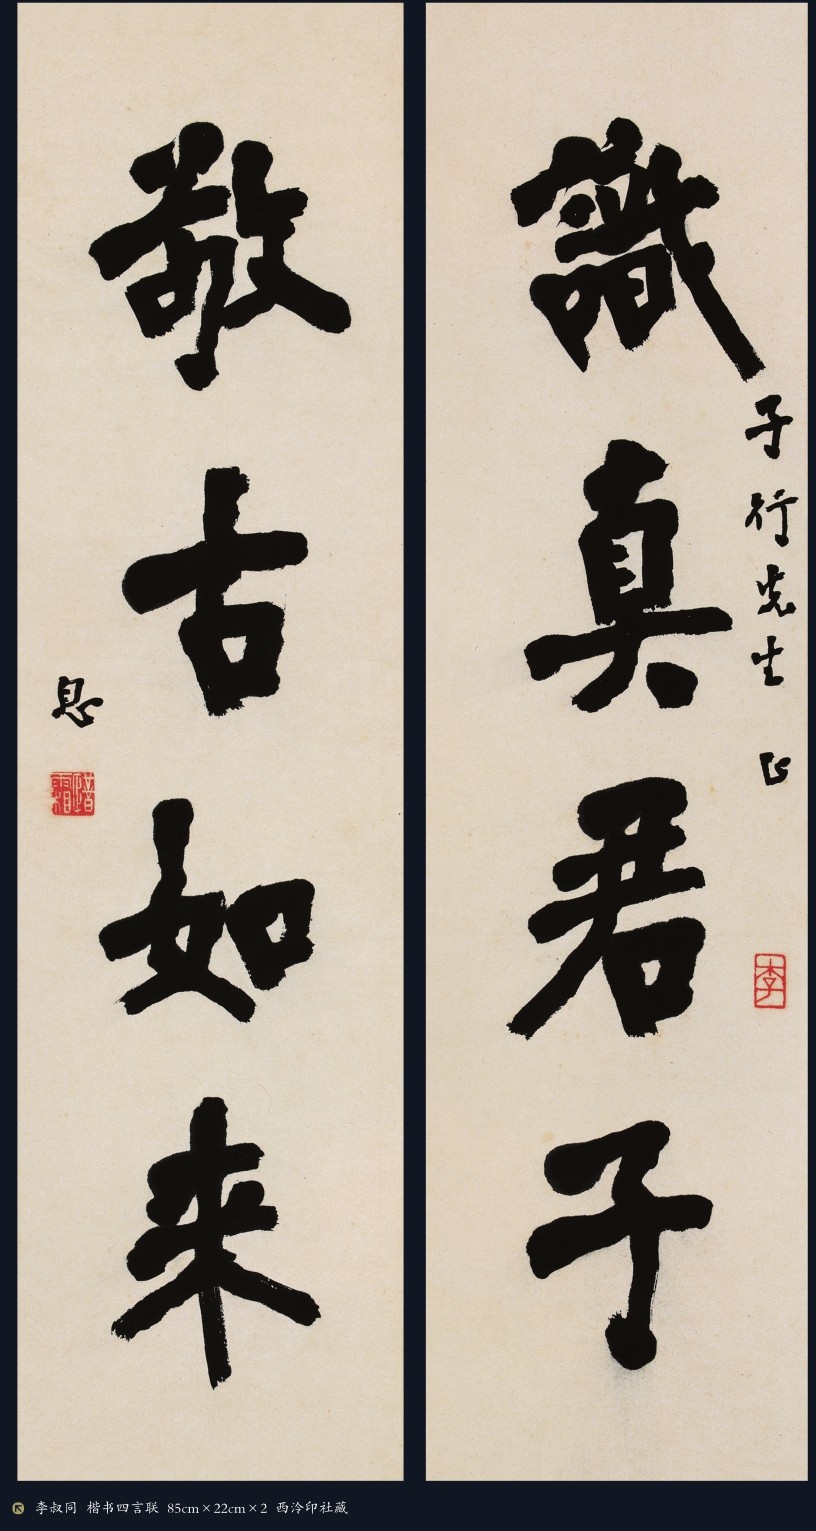 識真君子
子行先生正
李
敬古如来
息
李叔同 楷书四言联 85cm×22cm×2 西泠印社藏